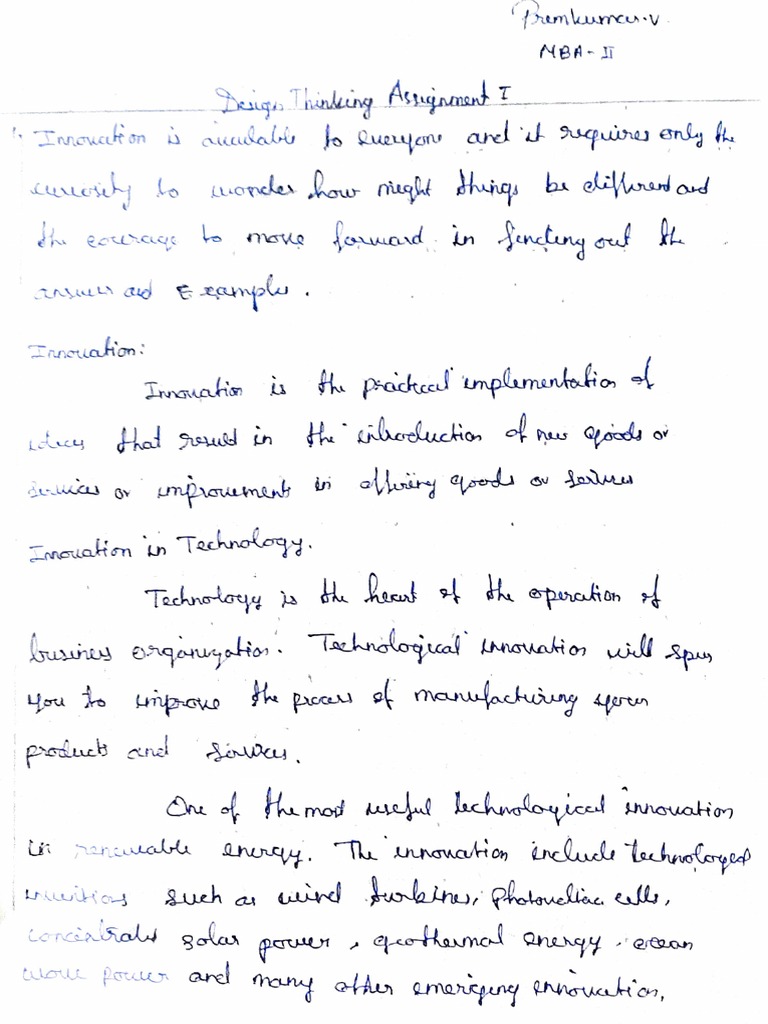 Premkumar.V
MBA-II
Design Thinking Assignment I
1. Innovation is available to everyone and it requires only the
curiosity to wonder how might things be different and
the courage to move forward in finding out the
answer and Example.
Innovation:
Innovation is the practical implementation of
ideas that result in the introduction of new goods or
services or improvement in offering goods or services
Innovation in Technology.
Technology is the heart of the operation of
business organization. Technological innovation will spur
you to improve the process of manufacturing your
products and services.
One of the most useful technological innovation
in renewable energy. The innovation include technological
such as wind turbines, photovoltaic cells,
concentrated solar power, geothermal energy, ocean
wave power and many other emerging innovation.